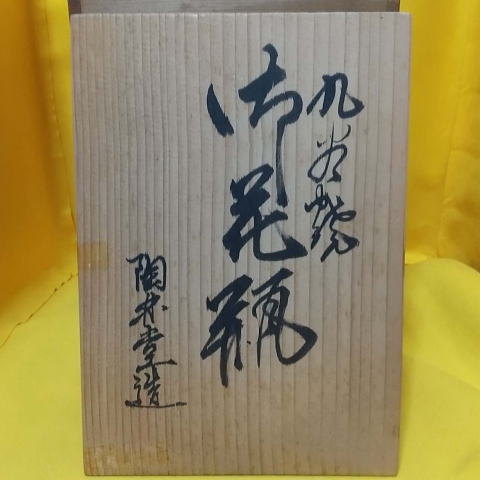 九谷焼
御花瓶
陶井堂造